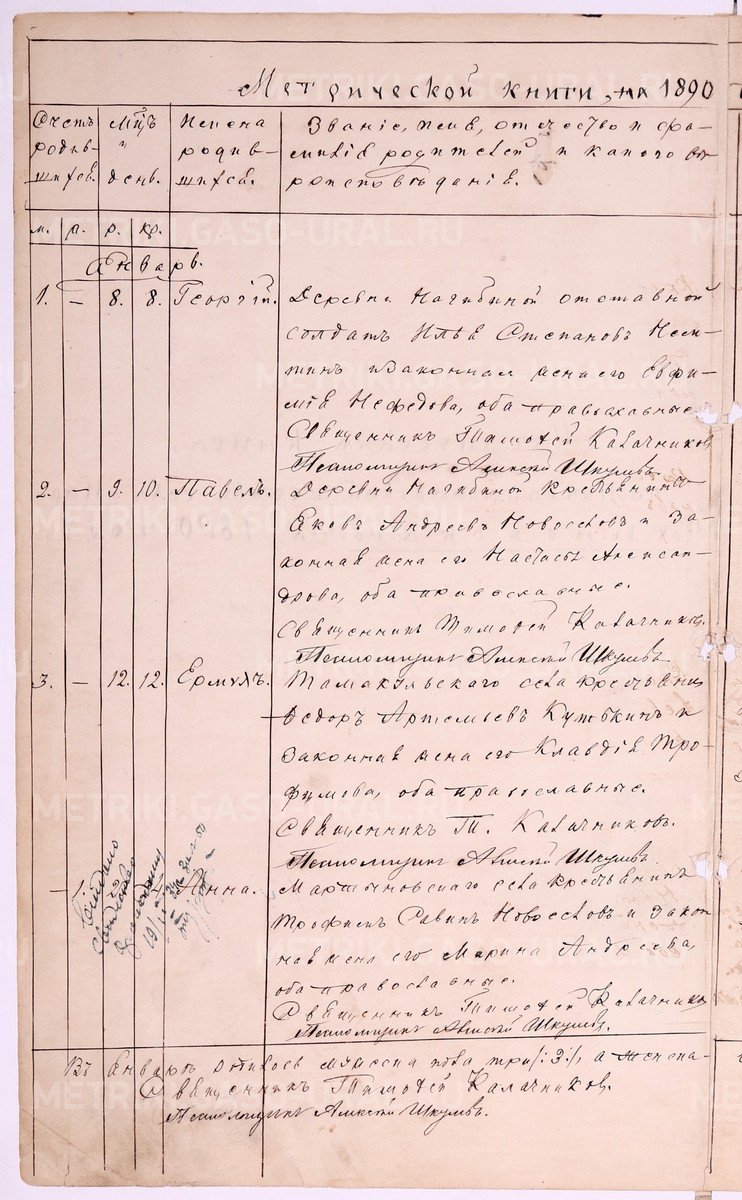 Метрической книги, на 1890
Счетъ родив- шихся.
Мцъ и день.
Имена родив- шихся.
Званіе, имя, отчество и фа-
милія родителей и какого вѣ-
роисповѣданія.
м. р. р. кр.
Январь.
1. — 8. 8. Георгій. Деревни Нагибиной отставной
солдатъ Илья Степановъ
и законная жена его Евфи-
мія Нефедова, оба православные.
Священникъ Тимофей Калачниковъ
Псаломщикъ Алексѣй Шкулевъ.
2. — 9. 10. Павелъ. Деревни Нагибиной крестьянинъ
Яковъ Андреевъ Новоселовъ и за-
конная жена его Настасья Алексан-
дрова, оба православные.
Священникъ Тимофей Калачниковъ.
Псаломщикъ Алексѣй Шкулевъ
3. — 12. 12. Ермилъ. Тамакульскаго села крестьянинъ
Ѳедоръ Артемьевъ Кутькинъ и
законная жена его Клавдія Тро-
фимова, оба православные.
Священникъ Т. Калачниковъ.
Псаломщикъ Алексѣй Шкулевъ.
— 1. Анна. Мартыновскаго села крестьянинъ
Трофимъ Савинъ Новоселовъ и закон-
ная жена его Марина Андреева,
оба православные.
Священникъ Тимофей Калачников
Псаломщикъ Алексѣй Шкулевъ.
Въ Январѣ родилось мужеска пола три /:3:/, а женска-
Священникъ Тимофей Калачниковъ.
Псаломщикъ Алексѣй Шкулевъ.
METRIKI.GASO-URAL.RU